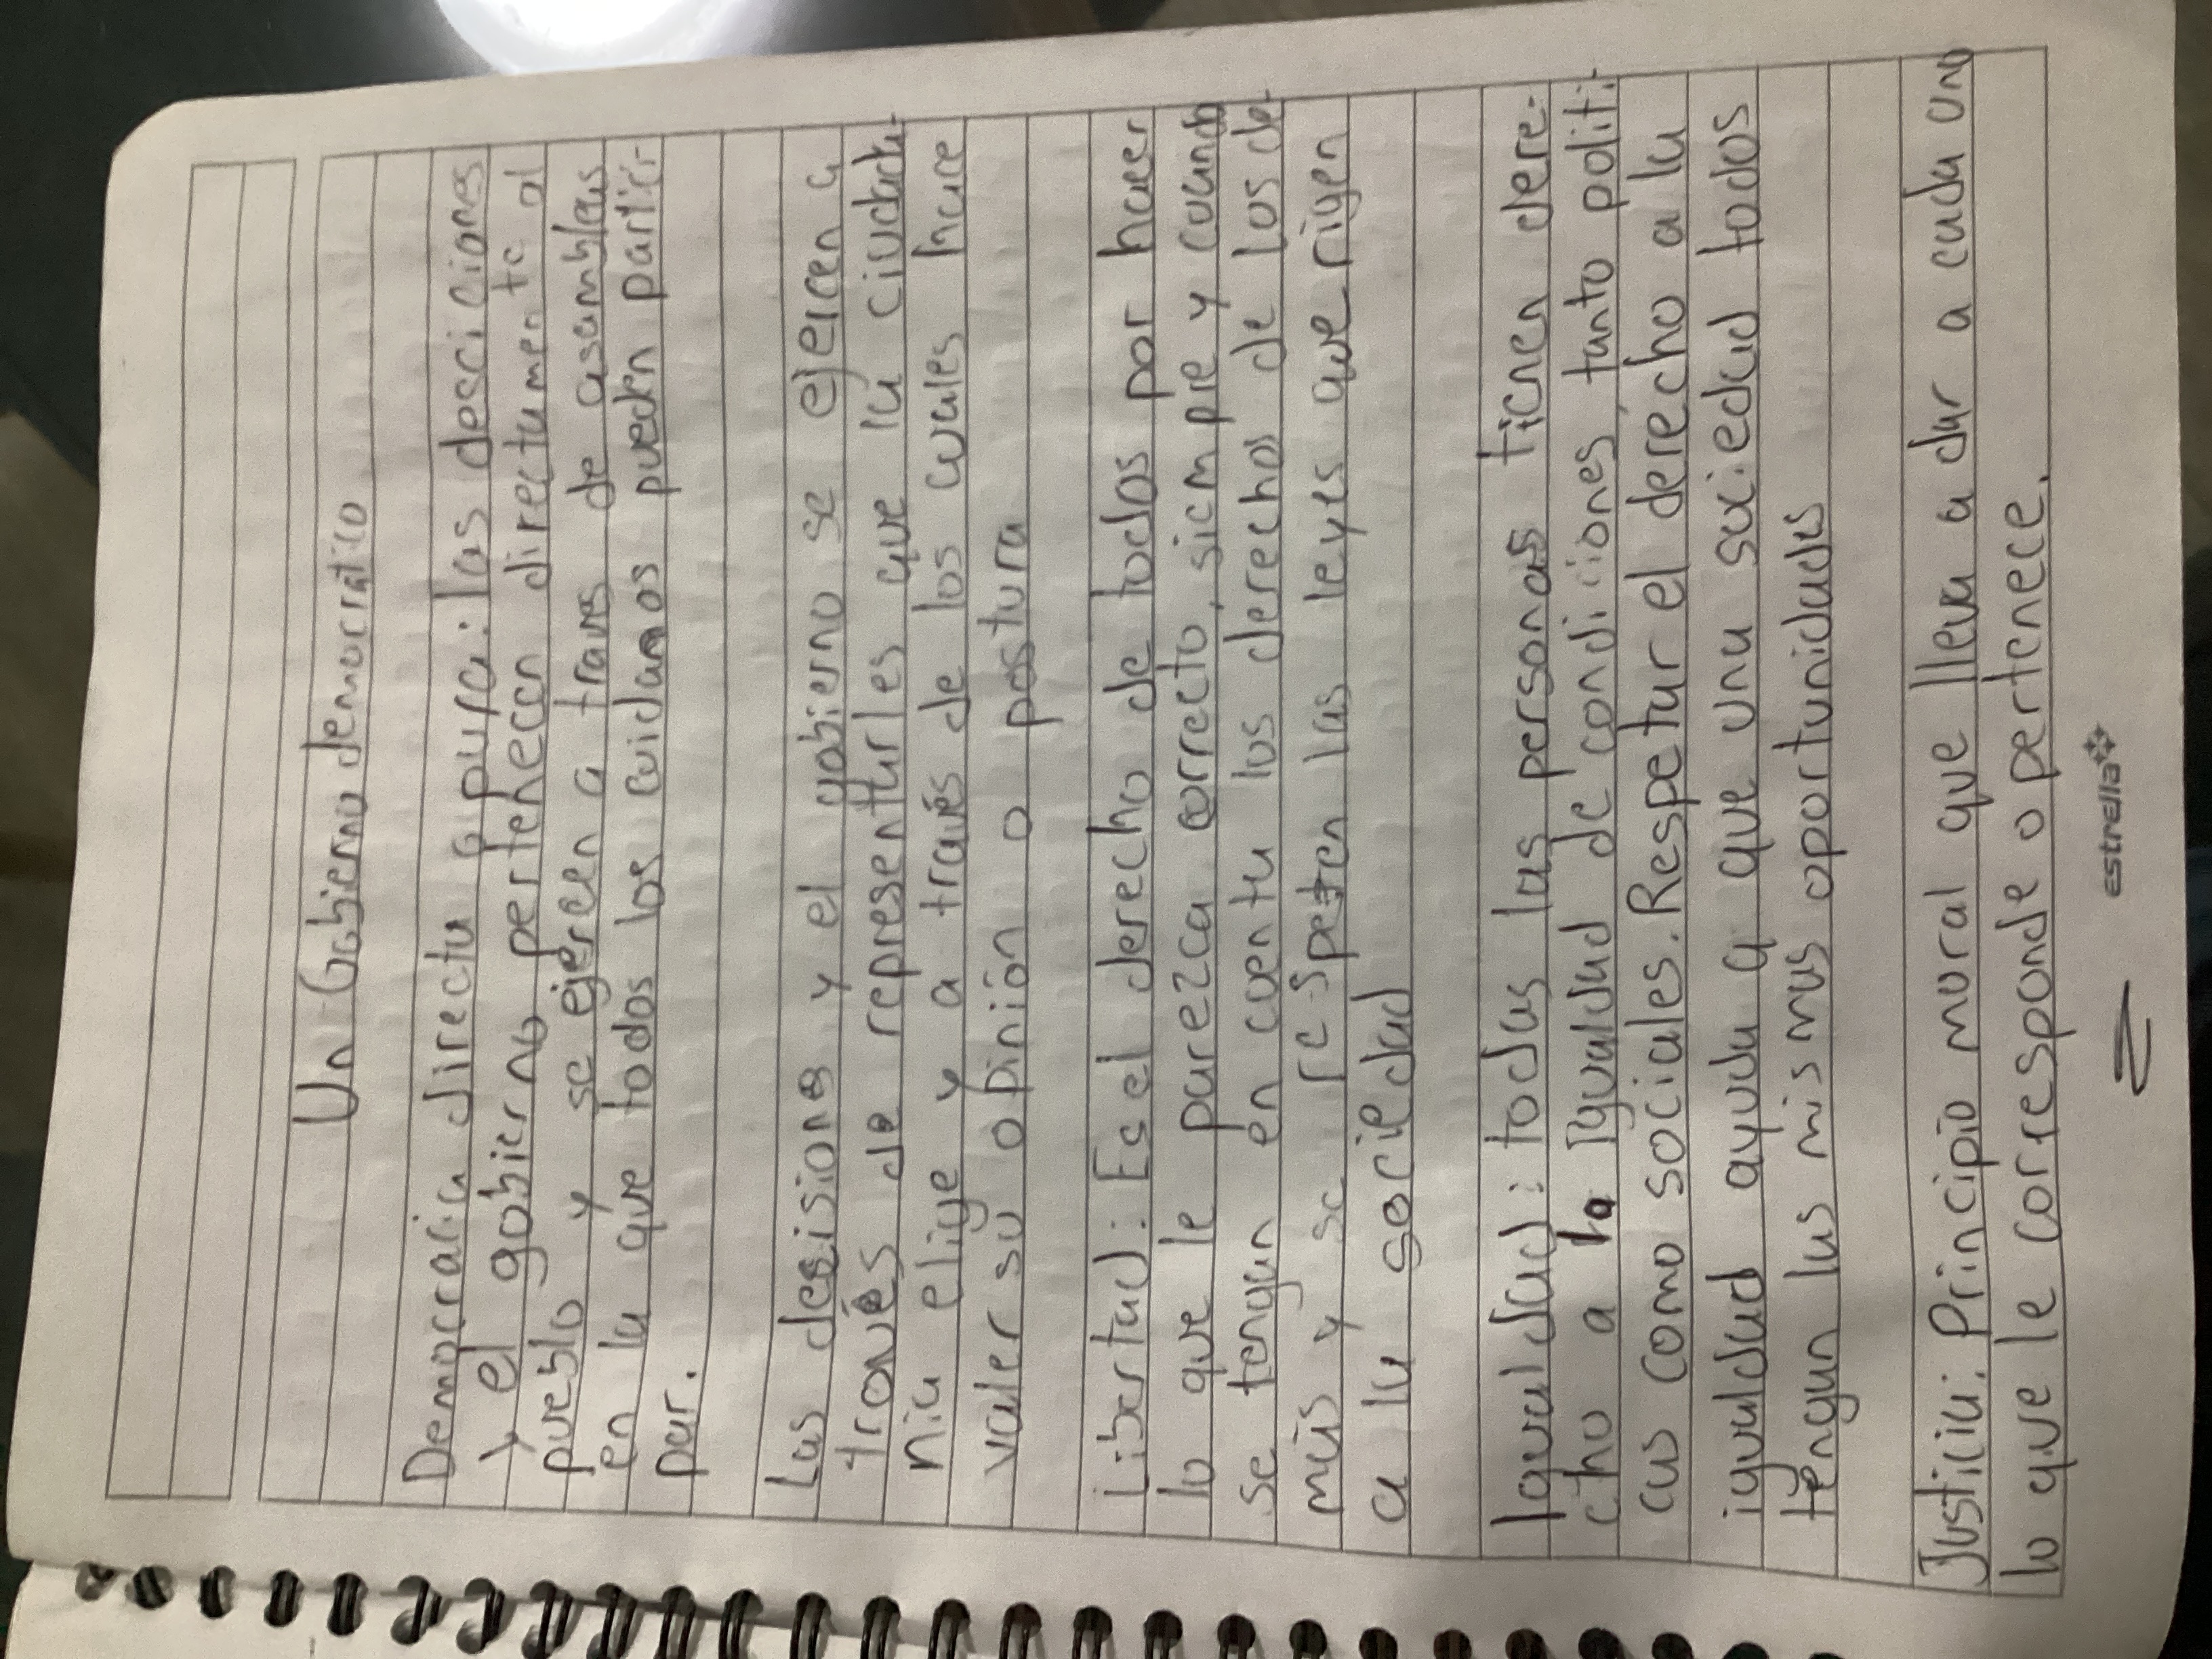 Un Gobierno democratico
Democracia directa o pura: las desciciones
y el gobierno pertenecen directamente al
pueblo y se ejercen a traves de asambleas
en la que todos los cuidanos pueden partici-
par.
Las desisiones y el gobierno se ejercen a
través de representantes que la ciudada-
nia elige y a través de los cuales hace
valer su opinión o postura
Libertad: Es el derecho de todos por hacer
lo que le parezca correcto, siempre y cuando
se tengan en cuenta los derechos de los de-
más y se respeten las leyes que rigen
a la sociedad
Igualdad: todas las personas tienen dere-
cho a la Igualdad de condiciones, tanto politi-
cas como sociales. Respetar el derecho a la
igualdad ayuda a que una sociedad todos
tengan las mismas oportunidades
Justicia: Principio moral que lleva a dar a cada uno
lo que le corresponde o pertenece.
estrella